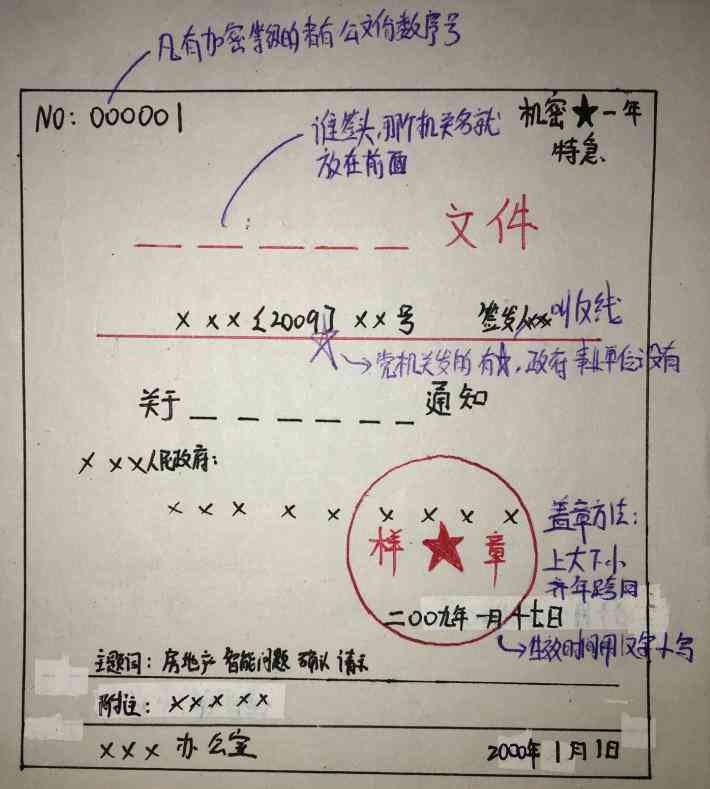 凡有加密等级的都有公文份数序号
NO: 000001
机密★一年
特急
谁牵头,那个机关名就
放在前面
_ _ _ _ _ 文件
×××〔2009〕××号 签发人×× 叫反线
☆→党机关发的有★,政府事业单位没有
关于_ _ _ _ _ _通知
×××人民政府:
× × × × × × × × ×
样★章
盖章方法:
上大下小
齐年跨月
二00九年一月十七日
→生效时间用汉字小写
主题词:房地产 智能问题 确认 请示
附注:×××××
×××办公室 2000年1月1日